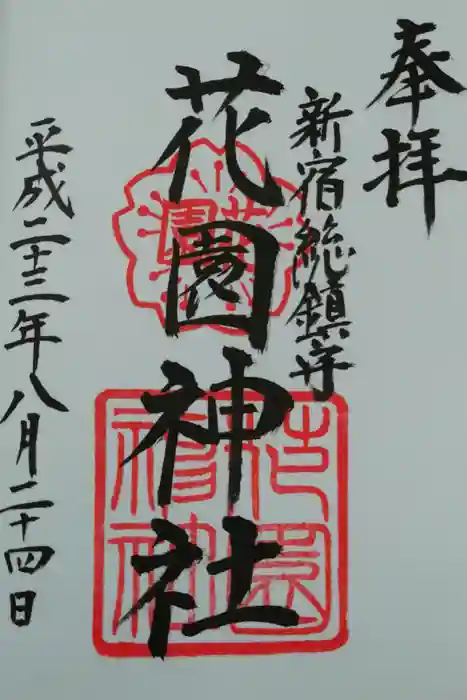 奉拝
新宿総鎮守
花園神社
平成二十三年八月二十四日